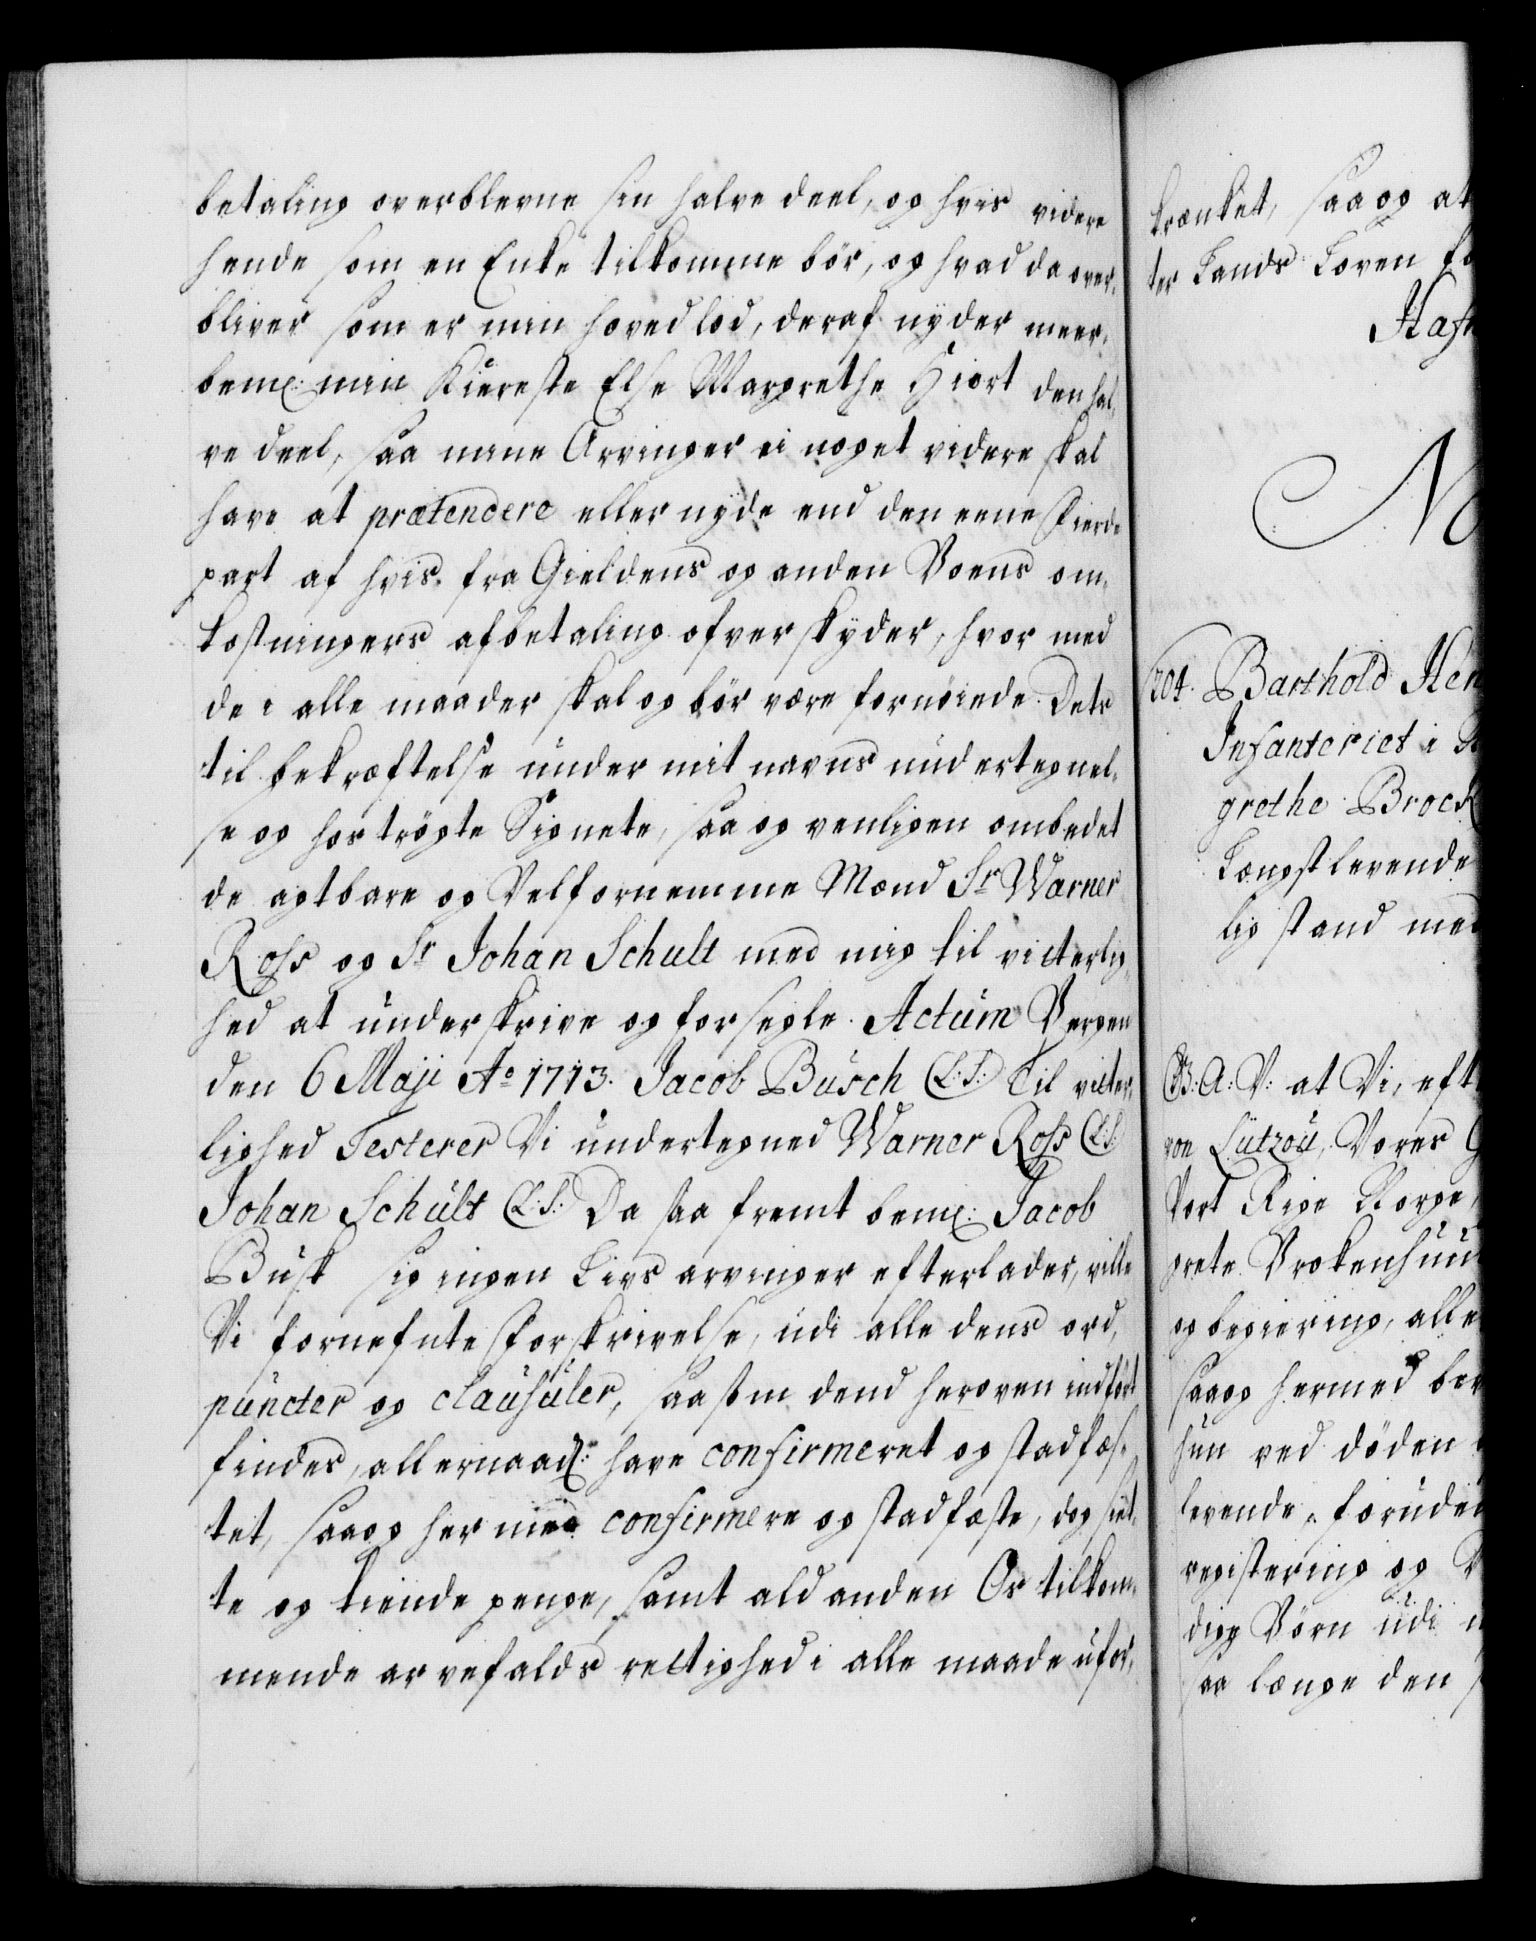 betaling overblevne sin halve deel, og hvis videre
hende som en Enke tilkomme bör, og hvad da over-
bliver som er min hoved lod, deraf nyder meer-
bem: min Kiereste Else Margrethe Hiort den hal-
ve deel, saa mine Arvinger ei noget videre skal
have at prætendere eller nyde end den eene fierde
part af hvis fra Gieldens og anden Boens om-
kostningers afbetaling ofver skyder, hvor med
de i alle maader skal og bör være fornöiede. Dets
til bekræftelse under mit navns undertegnel-
se og hos trögte Signete, saa og venligen ombedet
de agtbare og Velfornemme Mænd Sr Warner
Ross og Sr Johan Schult med mig til vitterlig-
hed at underskrive og forsegle. Actum Bergen
den 6 Maji Ao 1713. Jacob Busch (L.S.) Til vitter-
lighed Testerer Vi undertegned Warner Ross (L.S.)
Johan Schult (L.S.) Da saa fremt bem: Jacob
Busk sig ingen Livs arvinger efterlader, ville
Vi fornefnte forskrivelse, udi alle dens ord,
puncter og clausuler, saasom dend heroven indfört
findes, allernaad: have confirmeret og stadfæs-
tet, saa og her med confirmere og stadfæste, dog siet-
te og tiende penge, samt ald anden Os tilkom-
mende arvefalds rettighed i alle maade ufor-
krænket, saa og at
ter Lands Loven
304. Barthold
Infanteriet i
grethe
Længstlevende
lig stand med
G: A: V: at Vi, eft
von Lützou, Vores
Vort Rige Norge,
grete Brokenhuu
og begiering, alle
saa og hermed
hun ved döden
levende, foruden
registering og
dige Börn udi
saa længe den